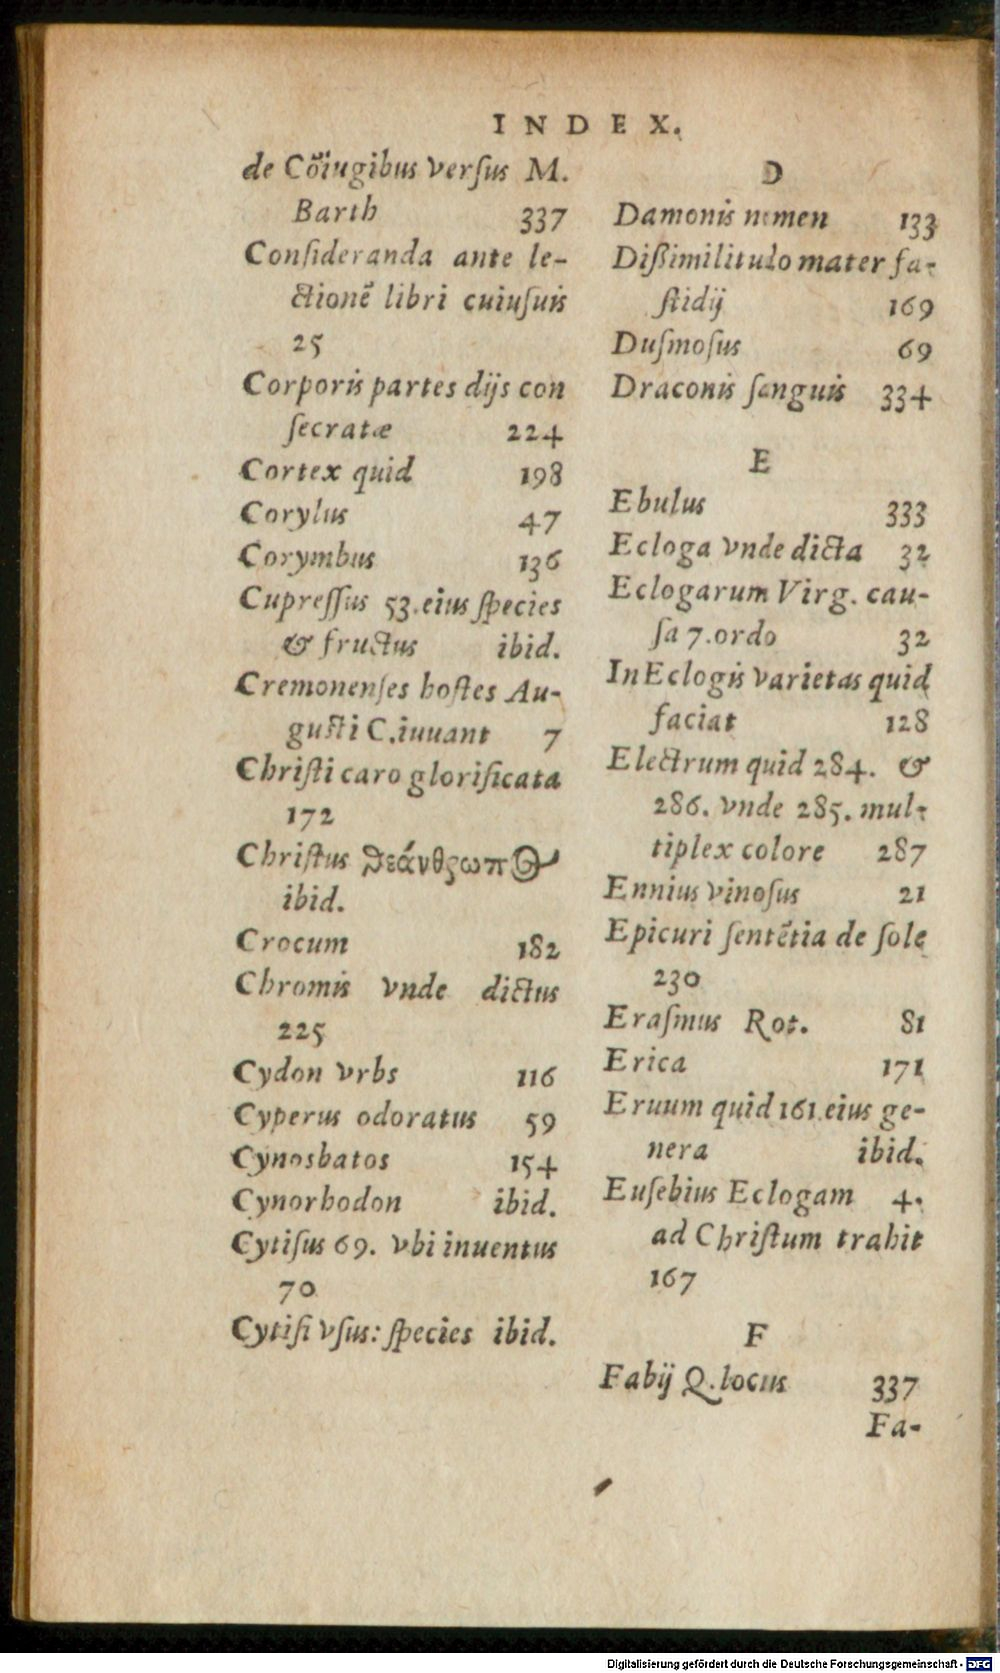 INDEX.
de Cõiugibus versus M.
Barth 337
Consideranda ante le-
ctionẽ libri cuiusuis
25
Corporis partes dijs con
secratæ 224
Cortex quid 198
Corylus 47
Corymbus 136
Cupressus 53. eius species
& fructus ibid.
Cremonenses hostes Au-
gusti C. iuuant 7
Christi caro glorificata
172
Christus θεάνθρωπος
ibid.
Crocum 182
Chromis vnde dictus
225
Cydon vrbs 116
Cyperus odoratus 59
Cynosbatos 154
Cynorhodon ibid.
Cytisus 69. vbi inuentus
70
Cytisi vsus: species ibid.
D
Damonis nomen 133
Dißimilitudo mater fa-
stidij 169
Dusmosus 69
Draconis sanguis 334
E
Ebulus 333
Ecloga vnde dicta 32
Eclogarum Virg. cau-
sa 7. ordo 32
In Eclogis varietas quid
faciat 128
Electrum quid 284. &
286. vnde 285. mul-
tiplex colore 287
Ennius vinosus 21
Epicuri sentẽtia de sole
230
Erasmus Rot. 81
Erica 171
Eruum quid 161. eius ge-
nera ibid.
Eusebius Eclogam 4.
ad Christum trahit
167
F
Fabij Q. locus 337
Fa-
Digitalisierung gefördert durch die Deutsche Forschungsgemeinschaft - DFG